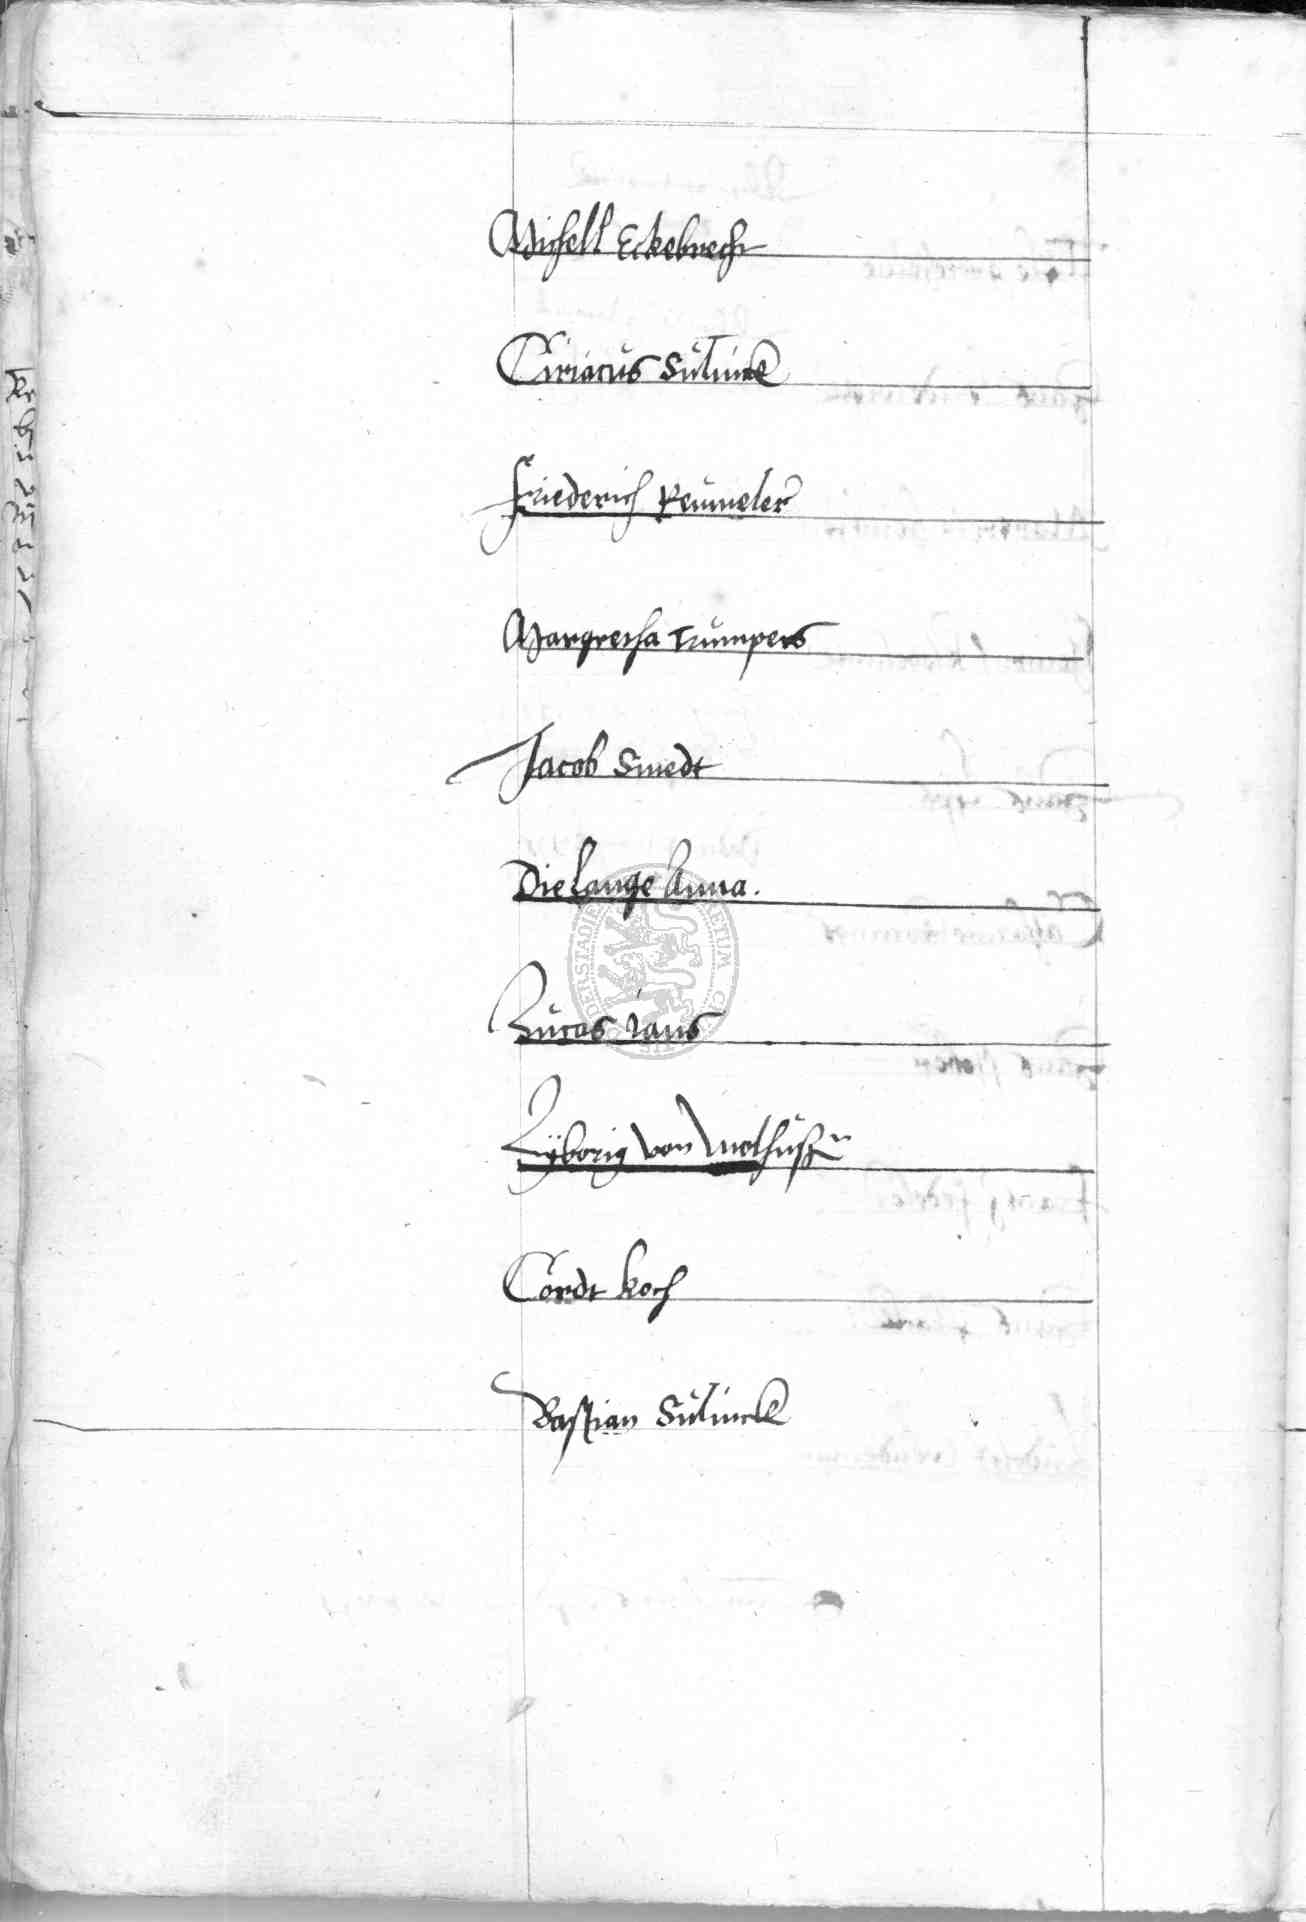 Michell Eckebrecht
Ciriacus Sulinck
Friederich Reumeler
Margretha Trumpers
Jacob Smedt
Die Lange Anna.
Lucas Jans
Zÿborig von
Cordt Koch
Bastian Sulinck